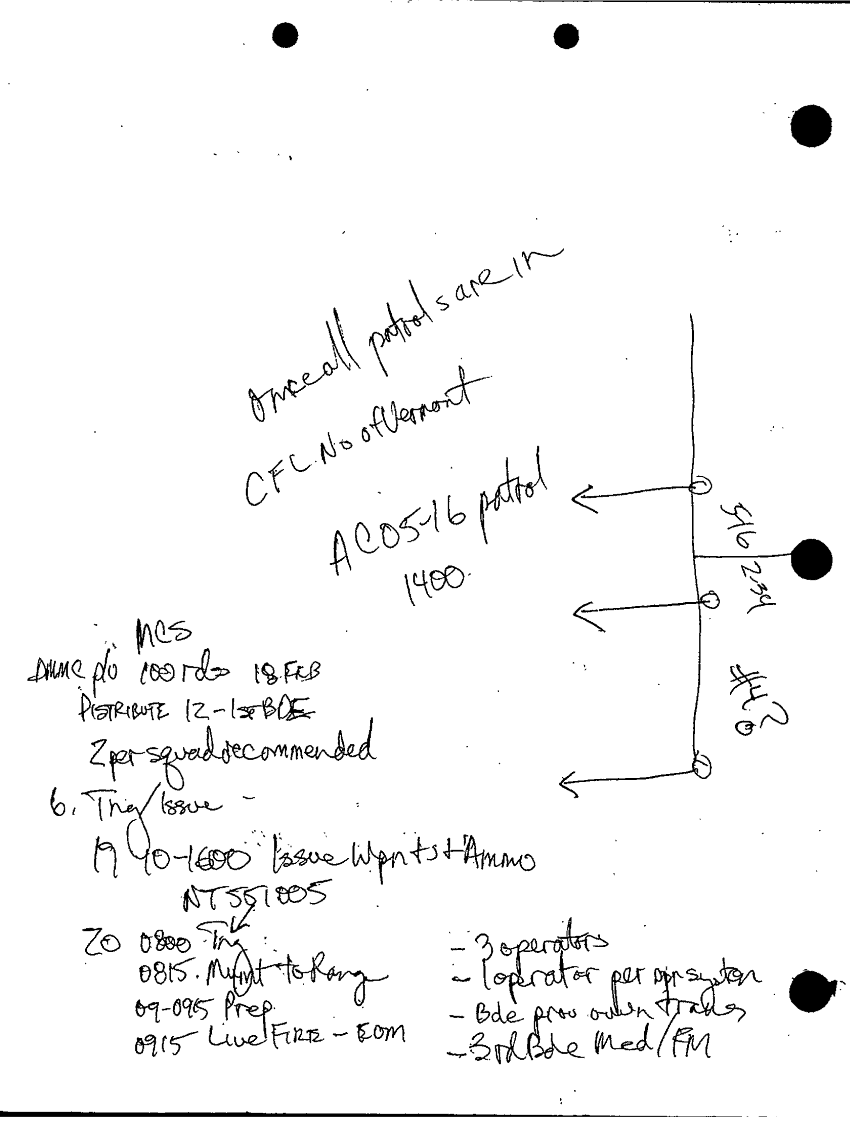 Once all patrols are in
CFL No of Vermont
A CO 5-16 patrol
1400
516
234
#4?
MCS
100 rds 18 FEB
DISTRIBUTE 12-1st BDE
2 per squad recommended
6. Tng/Issue -
19 10-1600 Issue Wpn + Ammo
NT551005
20 0800 Tng
0815. Mvmnt to Range
09-0915 Prep
0915 Live FIRE - EOM
- 3 operators
- 1 operator per system
- Bde prov own trans
- 3rd Bde Med/FM